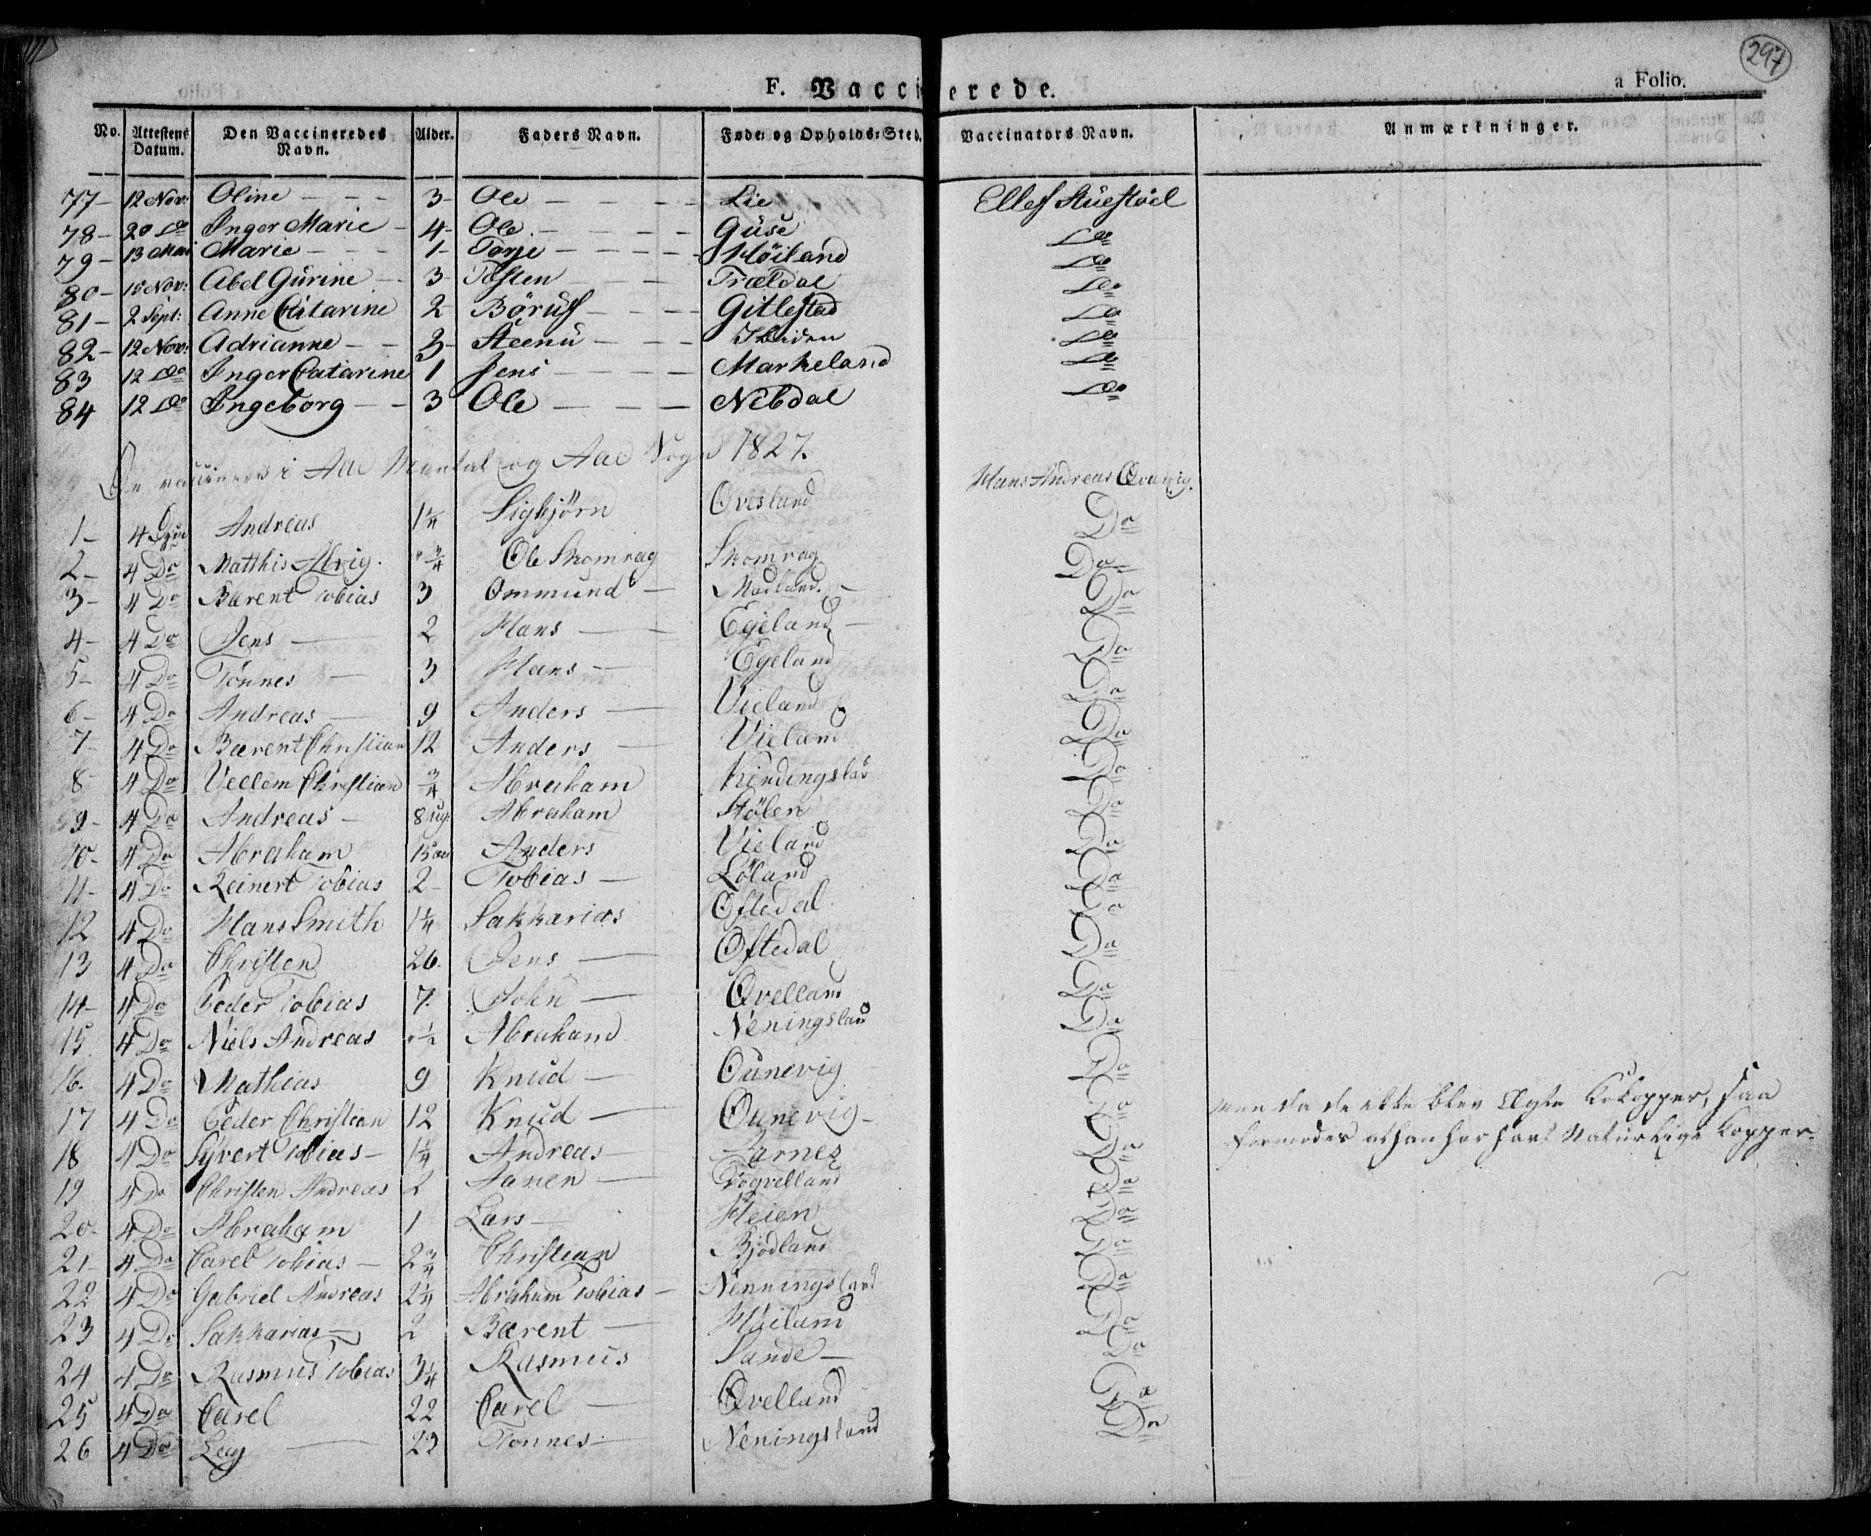 297
F. Vaccinerede.
a Folio.
No. Attestens Datum. Den Vaccineredes Navn. Alder. Faders Navn. Føde- og Opholds-Sted. Vaccinators Navn. Anmærkninger.
77- 12 Nov: Oline - - - 3- Ole - - - - Lie Ellef Stuestøel
78- 20 Do Inger Marie - 4- Ole - - - - Guse Do
79- 13 Mai Marie - - - 1- Torje - - - - Høiland Do
80- 10 Nov: Abel Gurine - - 3- Tosten - - - Trældal Do
81- 2 Sept: Anne Catarine 2 Børuf - - - Gitlestad Do
82- 12 Nov: Adrianne - - 3- Steenu - - - Do
83 12 Do Inger Catarine 1 Jens - - - - Markeland Do
84 12 Do Ingeborg - - 3 Ole - - - Nebdal Do
i Aae og Aae Sogn 1827.
Hans Andreas
1- 4 Andreas 1¼ Sigbjørn Øvesland Do
2- 4 Do Matthis ¾ Ole Skomrag Skomrag Do
3- 4 Do Bærent Tobias 3 Ommund - Modland. - Do
4- 4 Do Jens - 2 Hans - Egeland - Do
5- 4 Do Tønnes - 3 Hans - Egeland Do
6- 4 Do Andreas - 9 Anders - Vieland Do
7- 4 Do Bærent Christian 12 Anders - Vieland Do
8- 4 Do Vellem Christian ¾ Abraham Do
9- 4 Do Andreas - 8 Abraham Stølen Do
10- 4 Do Abraham 15 Anders Vieland Do
11- 4 Do Reinert Tobias 2- Tobias - Løland Do
12 4 Do Hans Smith 1¼ Sakkarias Oftedal Do
13 4 Do Christen 26. Jens - Oftedal Do
14- 4 Do Peder Tobias 7. John - Qvelland Do
15 4 Do Niels Andreas ½ Abraham Neningsland Do
16. 4 Do Mathias 9 Knud - Ounevig Do
17 4 Do Peder Christian 12 Knud - Ounevig - Do men da de ikke blev Ægte Kokopper, saa
formodes at han har havt Naturlige Kopper.
18 4 Do Syvert Tobias - 1¼ Andreas - Aarnes Do
19 4 Do Christen Andreas 2 Aanen - Do
20- 4 Do Abraham 1 Lars - Heien Do
21- 4 Do Carel Tobias - 2¾ Christian Bjodland Do
22 4 Do Gabriel Andreas 2¼ Abraham Tobias - Nenningsland Do
23 4 Do Sakkarias - 2 Bærent - Høiland Do
24 4 Do Rasmus Tobias 3¼ Rasmus Sande - Do
25 4 Do Carel 22 Carel - Qvelland Do
26 4 Do - 23 Tønnes - Neningsland Do